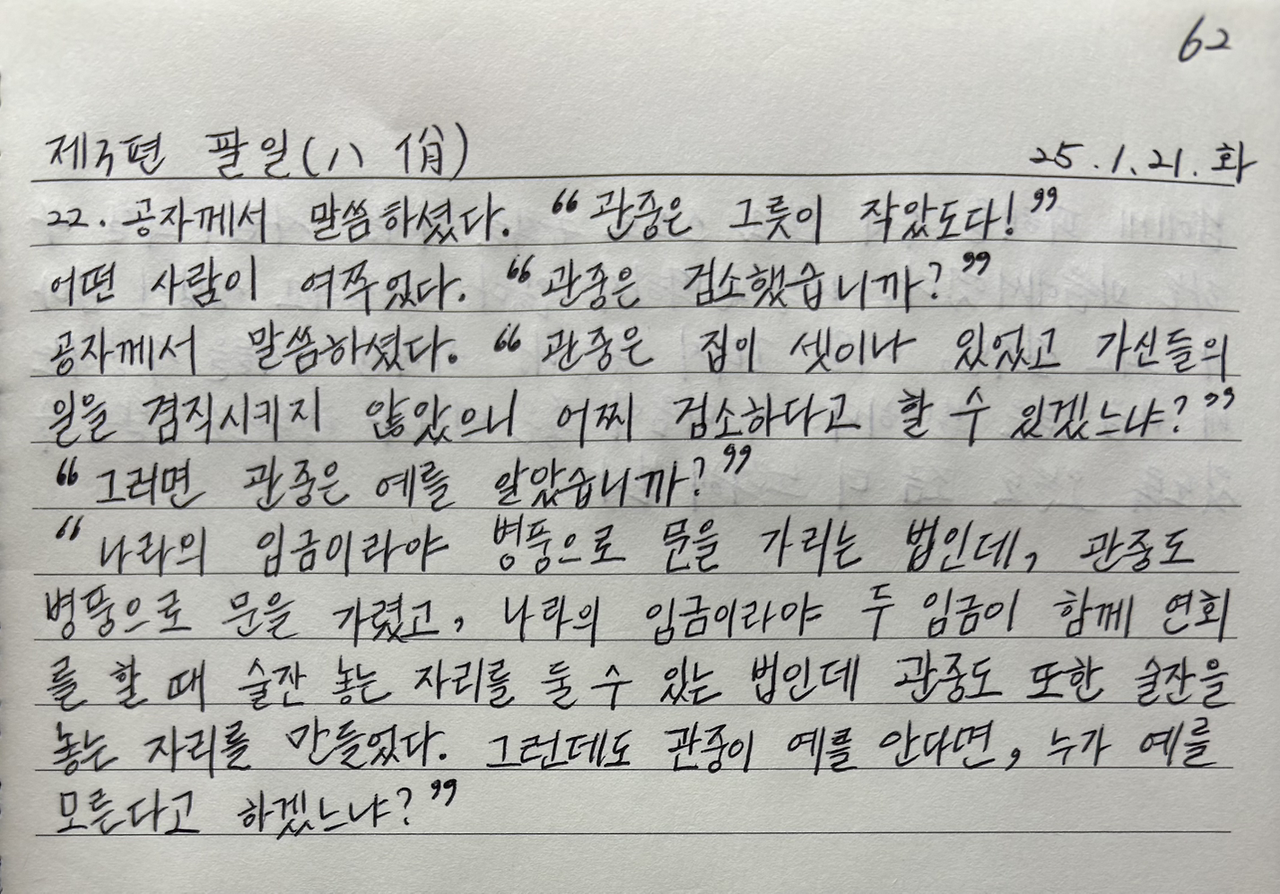 62
제3편 팔일(八佾) 25.1.21.화
22. 공자께서 말씀하셨다. “관중은 그릇이 작았도다!”
어떤 사람이 여쭈었다. “관중은 검소했습니까?”
공자께서 말씀하셨다. “관중은 집이 셋이나 있었고 가신들의
일을 겸직시키지 않았으니 어찌 검소하다고 할 수 있겠느냐?”
“그러면 관중은 예를 알았습니까?”
“나라의 임금이라야 병풍으로 문을 가리는 법인데, 관중도
병풍으로 문을 가렸고, 나라의 임금이라야 두 임금이 함께 연회
를 할 때 술잔 놓는 자리를 둘 수 있는 법인데 관중도 또한 술잔을
놓는 자리를 만들었다. 그런데도 관중이 예를 안다면, 누가 예를
모른다고 하겠느냐?”